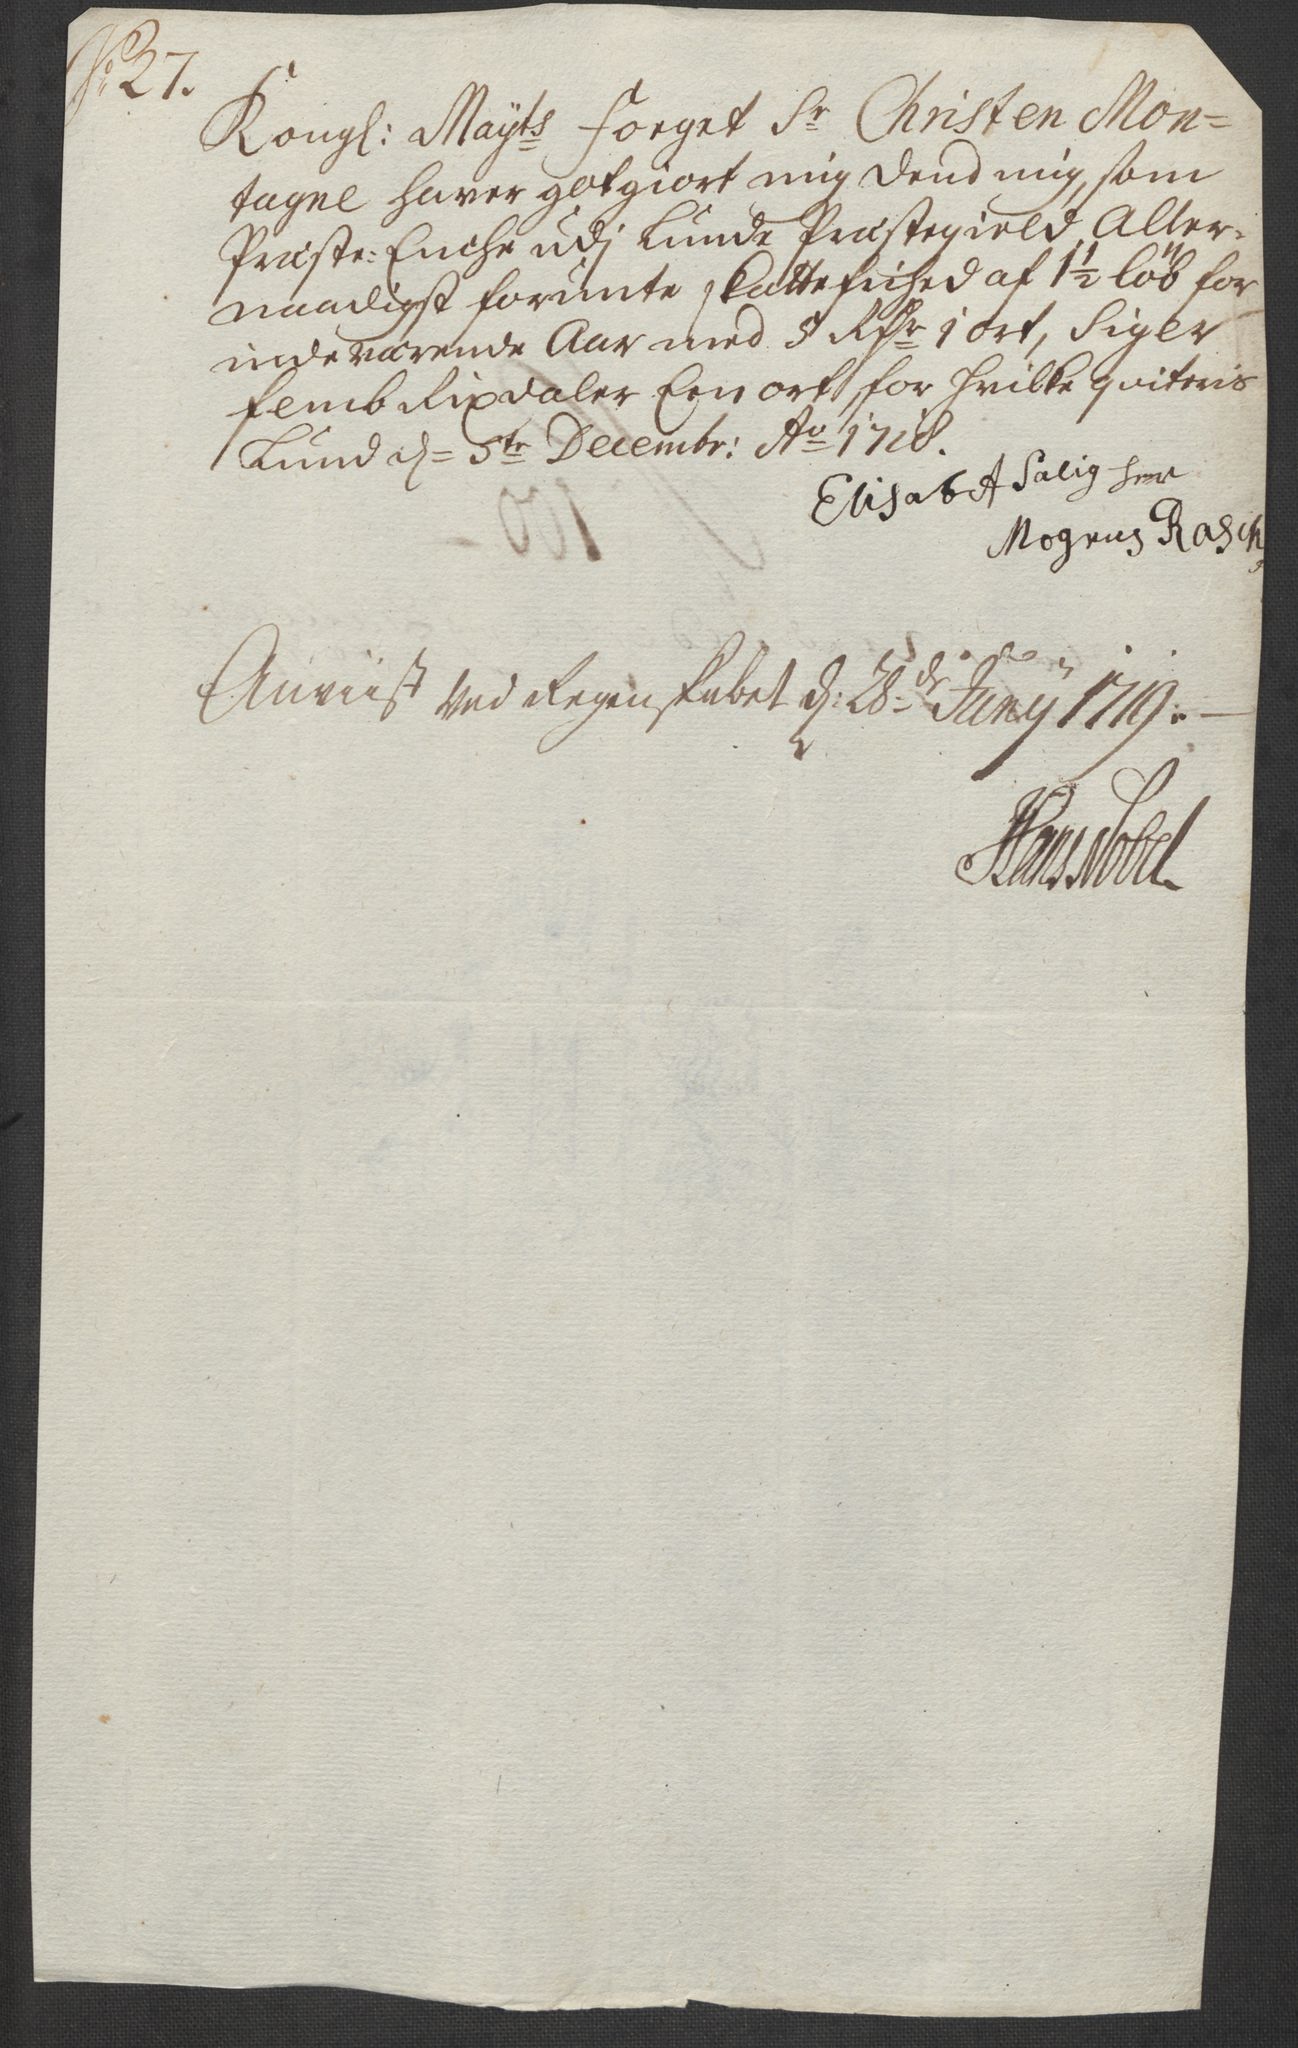 No: 27.
Kongl: Maÿts Foeget Sr Christen Mon=
tagne haver gotgiort mig dend mig, som
Præste: Enche udj Lunde Præstegield, Aller-
naadigst forunte skattefrihed af 1½ löb for
indeværende Aar med 5 Rdr 1 ort, siger
femb Rixdaler Een ort, for hvilke qviteris
Lund d= 5te Decembr: Ao 1718.
Elisabet Salig her
Mogens Rasch
Anviist ved Regenskabet d: 28de Junÿ 1719.
Hans Nobel